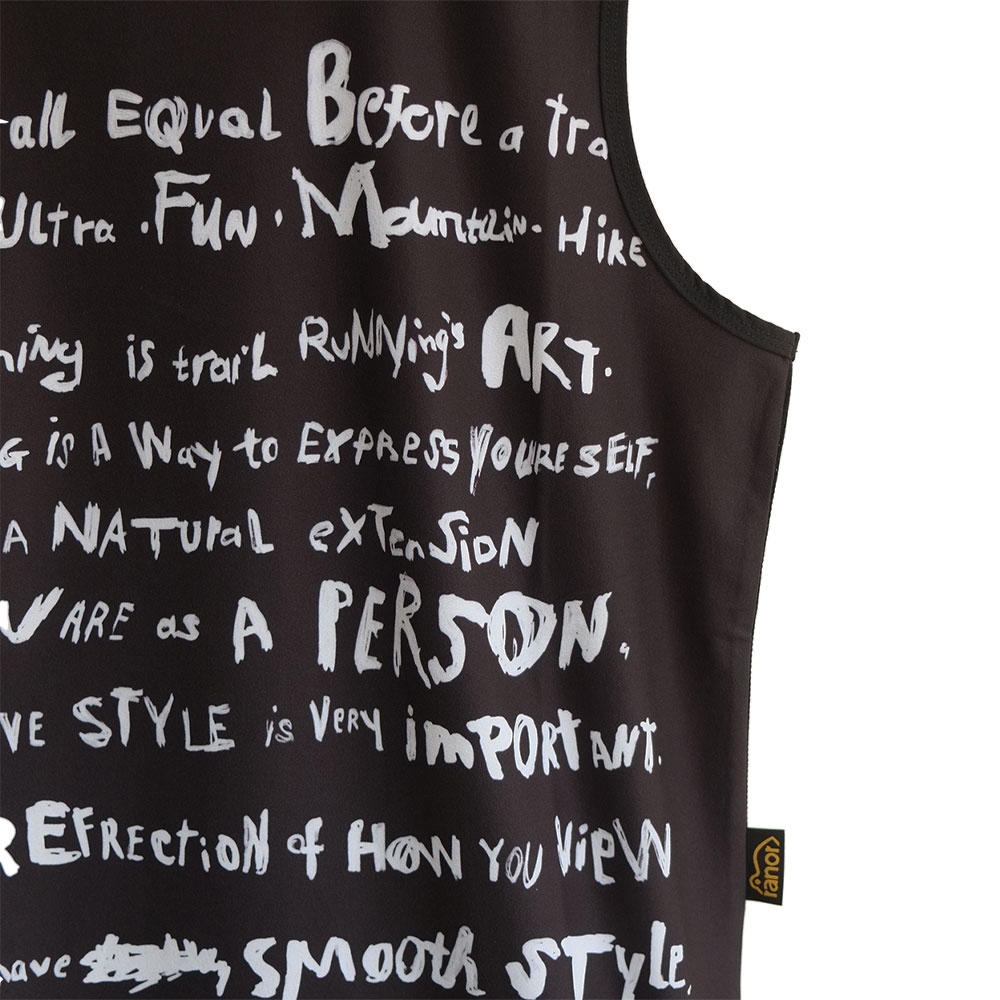 all EQUal Before a tra
Ultra · FUN · Mountain · HiKE
ning is trail RUNNing's ART.
G is A Way to EXPRESS YOURESELF,
A NATUral exTenSiON
U ARE as A PERSON.
VE STYLE is VERy imPORTANT.
REFRection of HOW YOU VieW
have SMooth STYle.
ranor